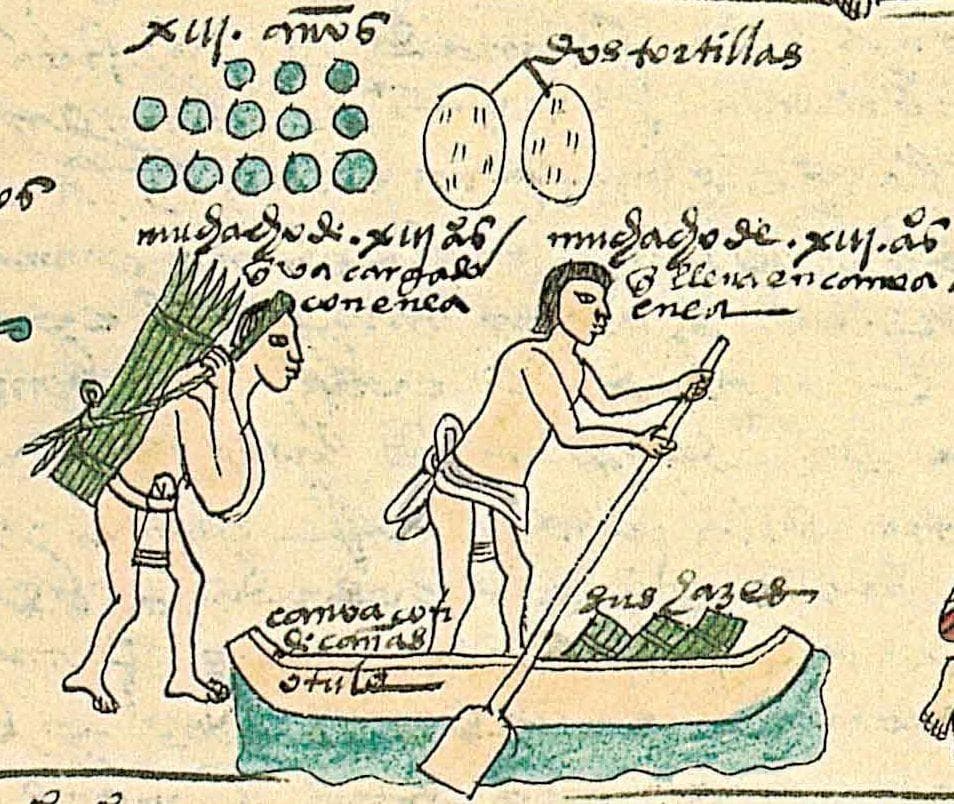 xiij. años
dos tortillas
muchacho de . xiij aºs /
q̃ va cargado
con enea
muchacho de . xiij. aºs
q̃ lleva en canoa
enea
os
canoa con
cañas
o tule
sus hazes